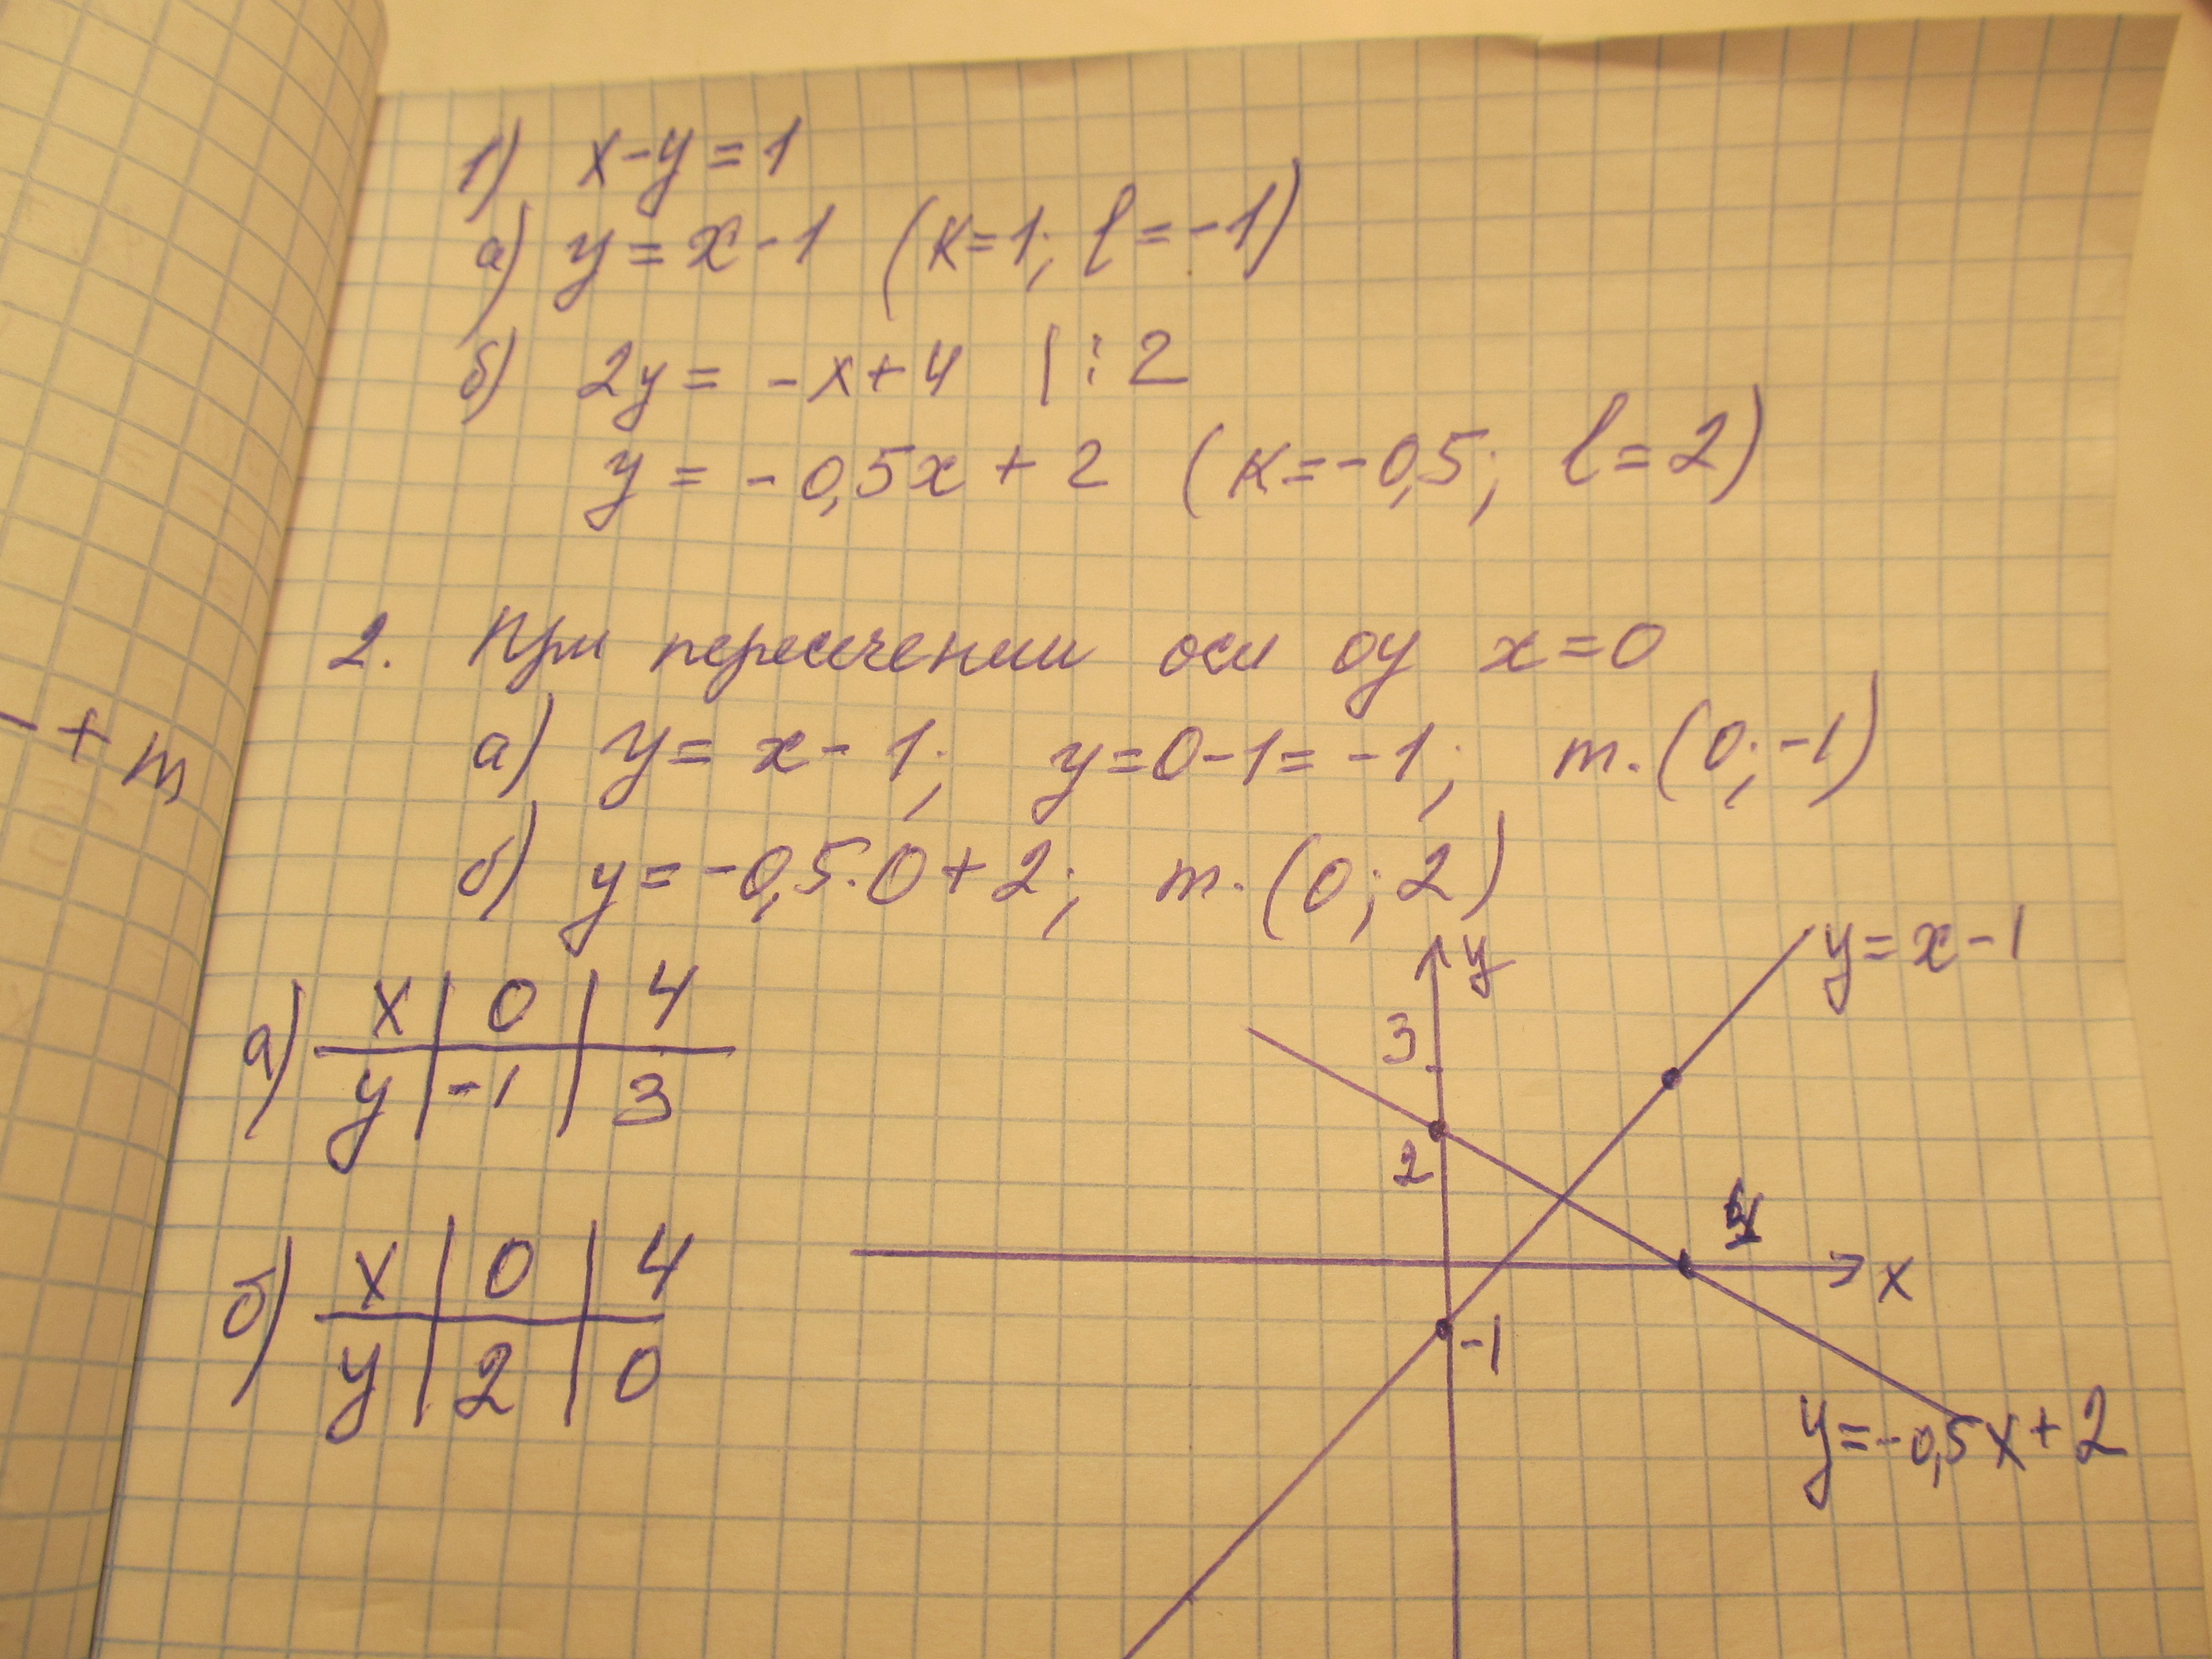 1) x-y=1
а) y=x-1 (k=1; l=-1)
б) 2y= -x+4 |:2
y= -0,5x+2 (k=-0,5; l=2)
2. При пересечении оси oy x=0
а) y= x-1; y=0-1= -1; т.(0;-1)
б) y=-0,5·0+2; т.(0;2)
-+m
а) x | 0 | 4
y | -1 | 3
б) x | 0 | 4
y | 2 | 0
y
y=x-1
3
2
x
-1
y=-0,5x+2